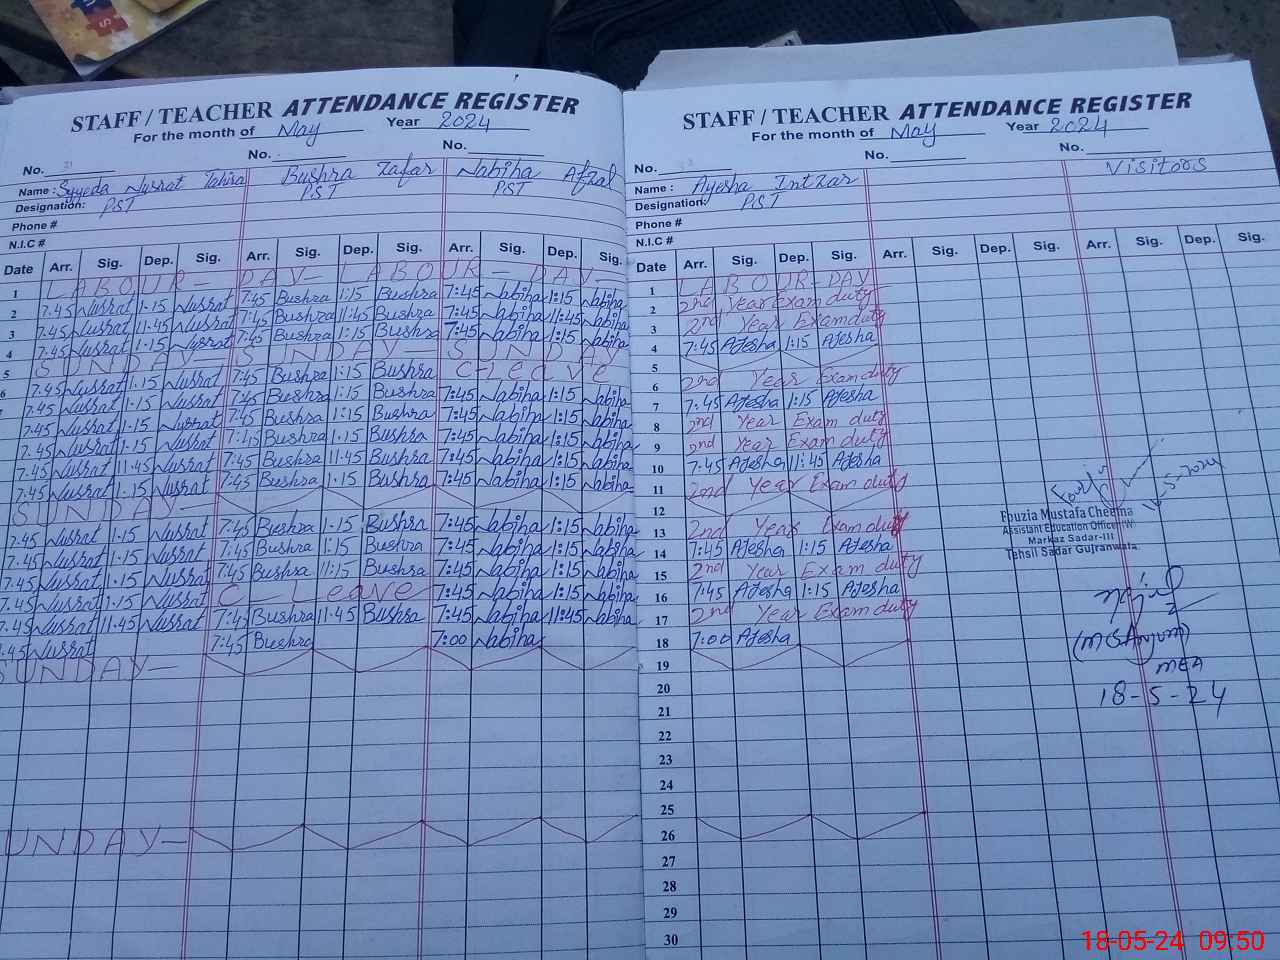 STAFF / TEACHER ATTENDANCE REGISTER
For the month of May Year 2024
No. No. No.
Name : Syyeda Nusrat Tahira Bushra Zafar Nabiha Afzal
Designation: PST PST PST
Phone #
N.I.C #
Date Arr. Sig. Dep. Sig. Arr. Sig. Dep. Sig. Arr. Sig. Dep. Sig.
1 LABOUR - DAY - LABOUR - DAY -
2 7:45 Nusrat 1:15 Nusrat 7:45 Bushra 1:15 Bushra 7:45 Nabiha 1:15 Nabiha
3 7:45 Nusrat 11:45 Nusrat 7:45 Bushra 11:45 Bushra 7:45 Nabiha 11:45 Nabiha
4 7:45 Nusrat 1:15 Nusrat 7:45 Bushra 1:15 Bushra 7:45 Nabiha 1:15 Nabiha
5 SUNDAY - SUNDAY - SUNDAY
6 7:45 Nusrat 1:15 Nusrat 7:45 Bushra 1:15 Bushra C-Leave
7:45 Nusrat 1:15 Nusrat 7:45 Bushra 1:15 Bushra 7:45 Nabiha 1:15 Nabiha
7:45 Nusrat 1:15 Nusrat 7:45 Bushra 1:15 Bushra 7:45 Nabiha 1:15 Nabiha
7:45 Nusrat 1:15 Nusrat 7:45 Bushra 1:15 Bushra 7:45 Nabiha 1:15 Nabiha
7:45 Nusrat 11:45 Nusrat 7:45 Bushra 11:45 Bushra 7:45 Nabiha 11:45 Nabiha
7:45 Nusrat 1:15 Nusrat 7:45 Bushra 1:15 Bushra 7:45 Nabiha 1:15 Nabiha
SUNDAY -
7:45 Nusrat 1:15 Nusrat 7:45 Bushra 1:15 Bushra 7:45 Nabiha 1:15 Nabiha
7:45 Nusrat 1:15 Nusrat 7:45 Bushra 1:15 Bushra 7:45 Nabiha 1:15 Nabiha
7:45 Nusrat 1:15 Nusrat 7:45 Bushra 11:15 Bushra 7:45 Nabiha 1:15 Nabiha
7:45 Nusrat 1:15 Nusrat C - Leave 7:45 Nabiha 1:15 Nabiha
7:45 Nusrat 11:45 Nusrat 7:45 Bushra 11:45 Bushra 7:45 Nabiha 11:45 Nabiha
7:45 Nusrat 7:45 Bushra 7:00 Nabiha
SUNDAY -
SUNDAY -
STAFF / TEACHER ATTENDANCE REGISTER
For the month of May Year 2024
No. No. No.
Name : Ayesha Intzar Visitoos
Designation: PST
Phone #
N.I.C #
Date Arr. Sig. Dep. Sig. Arr. Sig. Dep. Sig. Arr. Sig. Dep. Sig.
1 LABOUR - DAY
2 2nd Year Exam duty
3 2nd Year Exam duty
4 7:45 Ayesha 1:15 Ayesha
5
6 2nd Year Exam duty
7 7:45 Ayesha 1:15 Ayesha
8 2nd Year Exam duty
9 2nd Year Exam duty
10 7:45 Ayesha 11:45 Ayesha
11 2nd Year Exam duty
12
13 2nd Year Exam duty
14 7:45 Ayesha 1:15 Ayesha
15 2nd Year Exam duty
16 7:45 Ayesha 1:15 Ayesha
17 2nd Year Exam duty
18 7:00 Ayesha
19
20
21
22
23
24
25
26
27
28
29
30
Fouzia
16-5-2024
Fouzia Mustafa Cheema
Assistant Education Officer (W)
Markaz Sadar-III
Tehsil Sadar Gujranwala
(MCS Anjum)
MEA
18-5-24
18-05-24 09:50